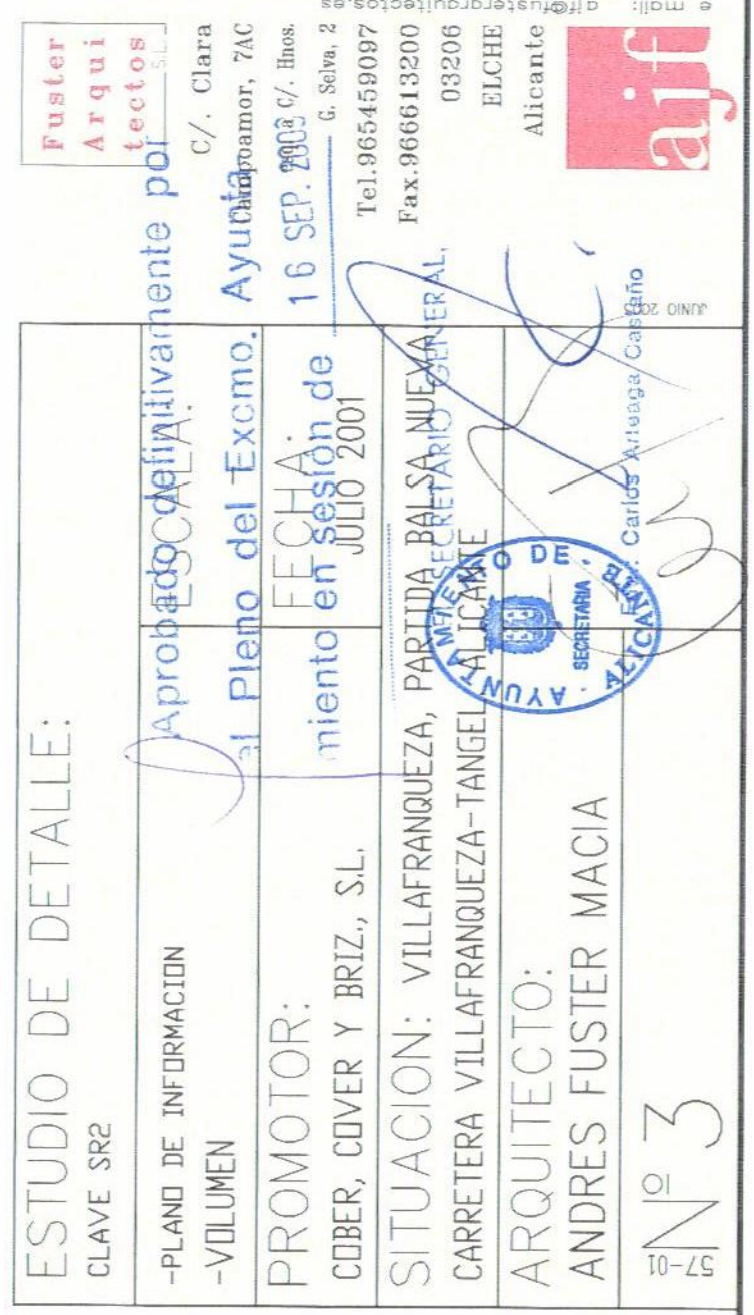 ESTUDIO DE DETALLE:
CLAVE SR2
-PLANO DE INFORMACION
-VOLUMEN
ESCALA:
PROMOTOR:
COBER, COVER Y BRIZ., S.L.
FECHA:
JULIO 2001
SITUACION: VILLAFRANQUEZA, PARTIDA BALSA NUEVA
CARRETERA VILLAFRANQUEZA-TANGEL ALICANTE
ARQUITECTO:
ANDRES FUSTER MACIA
57-01
Nº 3
Aprobado definitivamente por
el Pleno del Excmo. Ayunta-
miento en sesión de 16 SEP. 2003
SECRETARIO GENERAL,
Carlos Arteaga Castaño
AYUNTAMIENTO DE
ALICANTE
SECRETARIA
JUNIO 2003
Fuster
Arqui
tectos
S.L.
C/. Clara
Campoamor, 7AC
C/. Hnos.
G. Selva, 2
Tel.965459097
Fax.966613200
03206
ELCHE
Alicante
ajf
e mail: ajf@fusterarquitectos.es